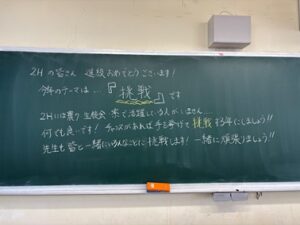 2Hの皆さん 進級おめでとうございます!
今年のテーマは…『挑戦』です
2Hには農ク 生徒会 寮で活躍している人がいません…
何でも良いです! チャンスがあれば手を挙げて挑戦する年にしましょう!!
先生も皆と一緒にいろんなことに挑戦します! 一緒に頑張りましょう!!